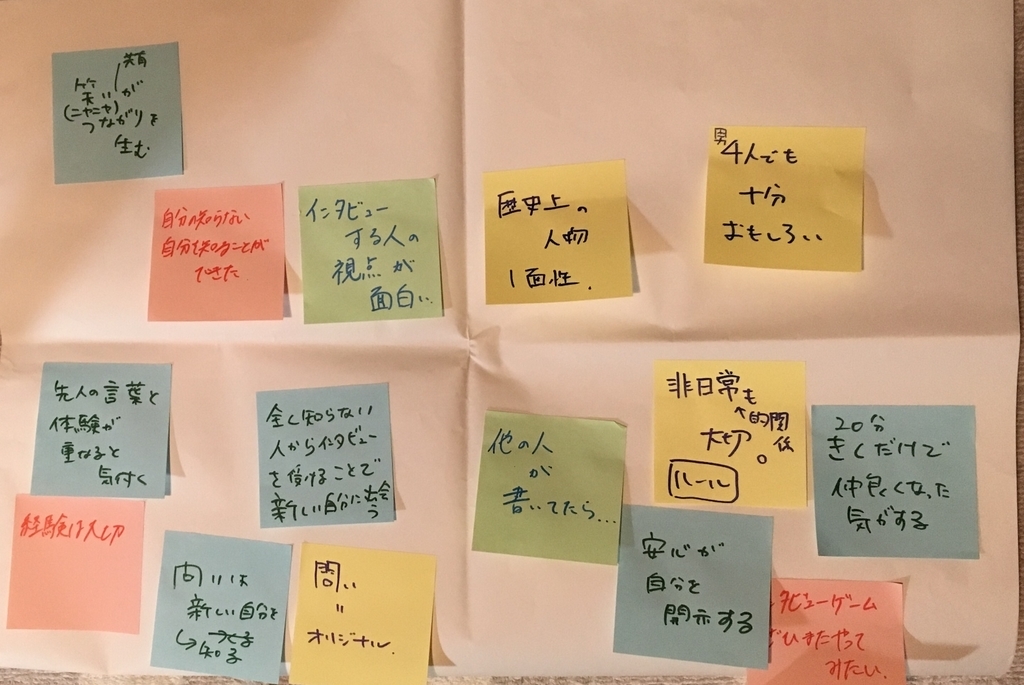 共有
笑いが
(ニヤニヤ)
つながりを
生む
自分の知らない
自分を知ることが
できた
インタビュー
する人の
視点が
面白い
歴史上の
人物
1面性.
男4人でも
十分
おもしろい
先人の言葉と
体験が
重なると
気付く
全く知らない
人からインタビュー
を受けることで
新しい自分に出会
う
他の人
が
書いてたら...
非日常も
↑的関係
大切。
ルール
20分
きくだけで
仲良くなった
気がする
経験は大切
問いは
新しい自分を
↳
知る
問い
=
オリジナル.
安心が
自分を
開示する
タビューゲーム
ぜひまたやって
みたい.